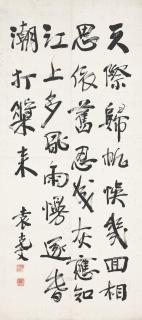 天際歸帆悞幾回相
思依舊忍成灰應知
江上多風雨慢逐春
潮打槳来
袁克文